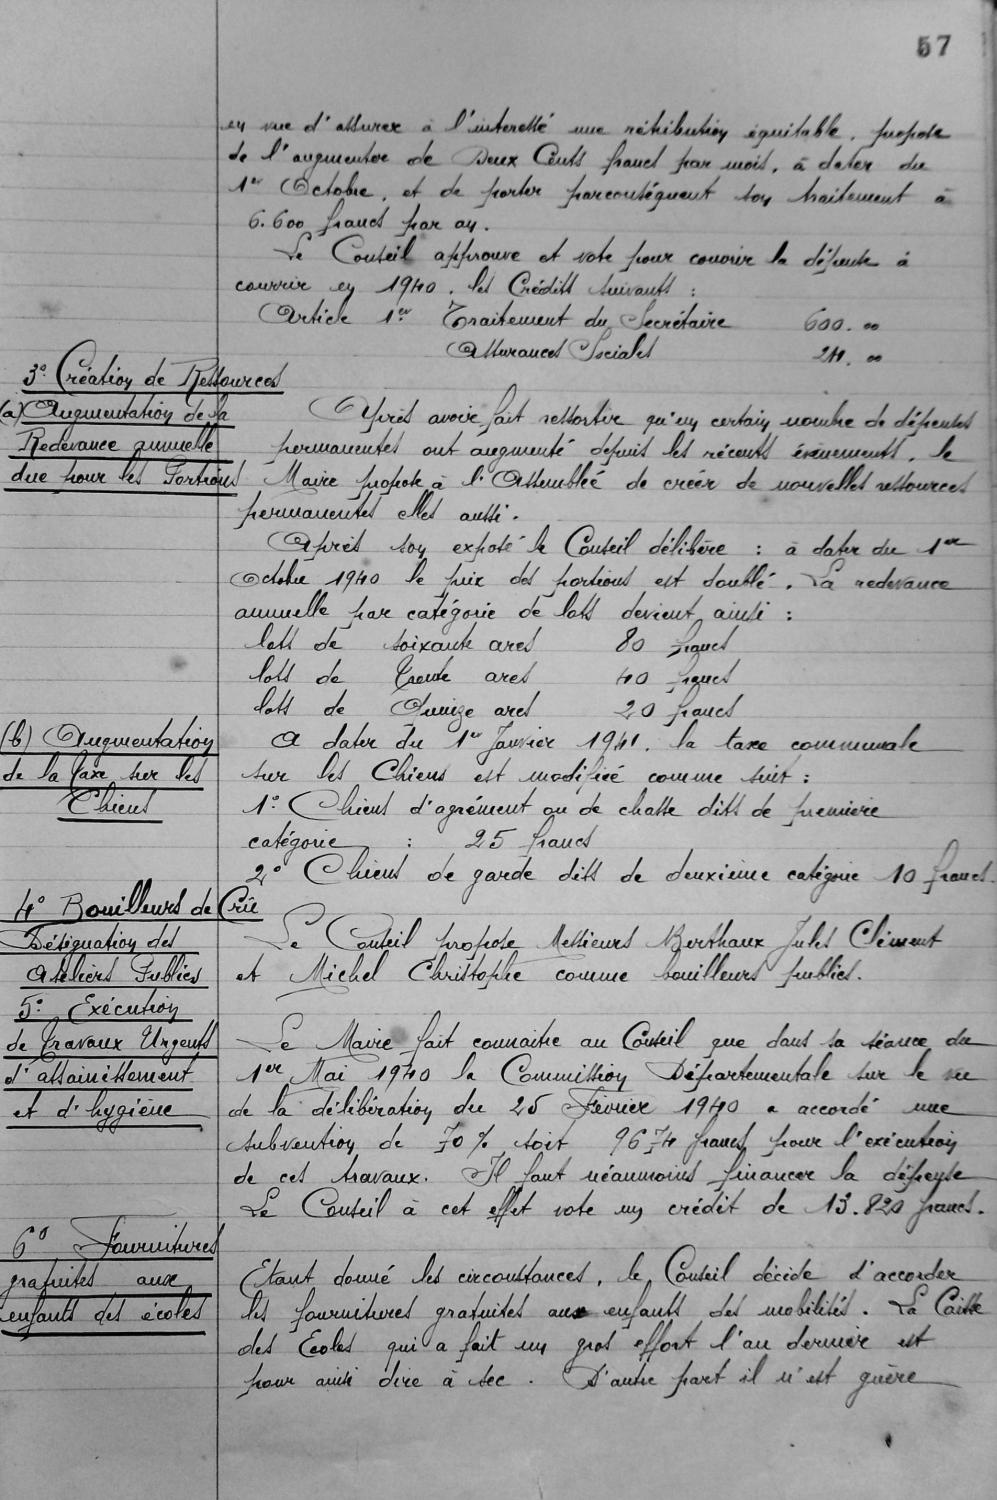 57
en vue d'assurer à l'interessé une rétribution équitable, propose
de l'augmenter de Deux Cents francs par mois, à dater du
1er Octobre, et de porter parconséquent son traitement à
6.600 francs par an.
Le Conseil approuve et vote pour couvrir la dépense à
couvrir en 1940, les Crédits suivants :
Article 1er Traitement du Secrétaire 600.00
Assurances Sociales 24.00
3° Création de Ressources
(a) Augmentation de la
Redevance annuelle
due pour les Portions
Après avoir fait ressortir qu'un certain nombre de dépenses
permanentes ont augmenté depuis les récents évènements, le
Maire propose à l'Assemblée de créer de nouvelles ressources
permanentes elles aussi.
Après son exposé le Conseil délibère : à dater du 1er
Octobre 1940 le prix des portions est doublé. La redevance
annuelle par catégorie de lots devient ainsi :
lots de soixante ares 80 francs
lots de Trente ares 40 francs
lots de Quinze ares 20 francs
(b) Augmentation
de la Taxe sur les
Chiens
A dater du 1er Janvier 1941, la taxe communale
sur les Chiens est modifiée comme suit :
1° Chiens d'agrément ou de chasse dits de première
catégorie : 25 francs
2° Chiens de garde dits de deuxième catégorie 10 francs.
4° Bouilleurs de Crû
Désignation des
Ateliers Publics
Le Conseil propose Messieurs Berthaux Jules Clément
et Michel Christophe comme bouilleurs publics.
5° Exécution
de Travaux Urgents
d'assainissement
et d'hygiène
Le Maire fait connaitre au Conseil que dans sa séance du
1er Mai 1940 la Commission Départementale sur le vu
de la délibération du 25 Février 1940 a accordé une
subvention de 70 % soit 9674 francs pour l'exécution
de ces travaux. Il faut néanmoins financer la dépense
Le Conseil à cet effet vote un crédit de 13.820 francs.
6° Fournitures
gratuites aux
enfants des écoles
Etant donné les circonstances, le Conseil décide d'accorder
les fournitures gratuites aux enfants des mobilisés. La Caisse
des Ecoles qui a fait un gros effort l'an dernier est
pour ainsi dire à sec. D'autre part il n'est guère